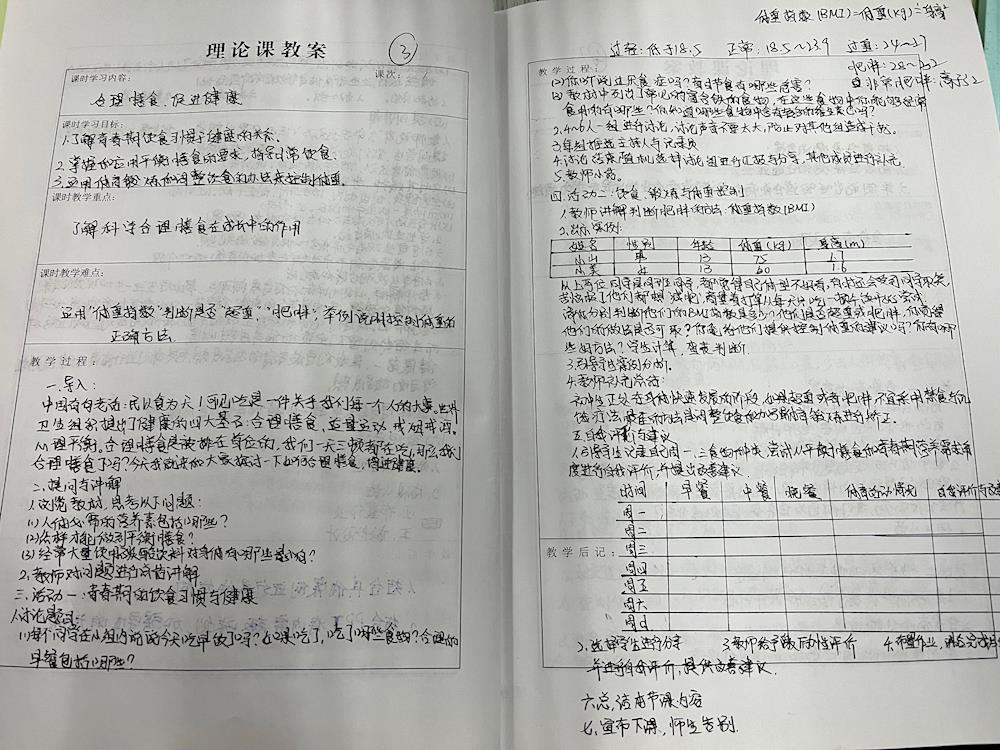 理论课教案
③
课时学习内容:
课次:
合理膳食,促进健康
课时学习目标:
1.了解青春期饮食习惯与健康的关系.
2.掌握和应用平衡膳食的要求,指导日常饮食.
3.运用体育锻炼和调整饮食的办法来控制体重.
课时教学重点:
了解科学合理膳食在成长中的作用
课时教学难点:
运用“体重指数”判断是否“超重”“肥胖”,举例说明控制体重的
正确方法.
教学过程:
一.导入:
中国有句老话:民以食为天!可见吃是一件关于我们每一个人的大事.世界
卫生组织提出了健康的四大基石:合理膳食、适量运动、戒烟戒酒、
心理平衡。合理膳食是被排在首位的,我们一天三顿都在吃,那么我们
合理膳食了吗?今天我就请大家探讨一下如何合理膳食,促进健康.
二.提问与讲解
1.浏览教材,思考以下问题:
(1)人体必需的营养素包括哪些?
(2)怎样才能做到平衡膳食?
(3)经常大量饮用碳酸饮料对身体有哪些影响?
2.教师对问题进行点评讲解
三.活动一:青春期的饮食习惯与健康
1.讨论题目:
(1)每个同学在小组内说说今天吃早饭了吗?如果吃了,吃了哪些食物?合理的
早餐包括哪些?
体重指数(BMI)=体重(kg)÷身高²
过轻:低于18.5 正常:18.5~23.9 过重:24~27
肥胖:28~32
非常肥胖:高于32
教学过程:
(2)你听说过厌食症吗?有过节食有哪些危害?
(3)教材中列出了常见的富含铁的食物,在这些食物中你能够经常
食用的有哪些?你知道哪些食物中含有较多的维生素C吗?
2.4~6人一组进行讨论,讨论声音不要太大,防止对其他组造成干扰.
3.每组推选主持人与记录员
4.讨论结束,随机选择讨论组进行汇报与分享,其他成员进行补充
5.教师小结.
四.活动二:饮食、锻炼与体重控制
1.教师讲解判断肥胖的方法:体重指数(BMI)
2.出示案例:
姓名 性别 年龄 体重(kg) 身高(m)
小山 男 13 75 1.7
小美 女 13 60 1.6
从上两位同学是同班同学,都觉得自己体型不好看,
请你分别判断他们的BMI指数是多少?他们是否超重或肥胖,你觉得
他们的做法是否可取?你能给他们提供控制体重的建议吗?你有哪
些好方法?学生计算,查表判断.
3.引导学生案例分析.
4.教师补充总结:
初中生正处在身体快速发展的阶段,如果超重或者肥胖不宜采用禁食与饥
饿疗法,最佳的方法是调整饮食的力与体育锻炼进行矫正.
五.自我评价与建议
1.引导学生记录自己周一~上食物种类,尝试从平衡膳食和青春期营养需求角
度进行自我评价,并提出改善建议.
时间 早餐 中餐 晚餐 体育活动情况 自我评价与改善
周一
周二
周三
周四
周五
周六
周日
教学后记:
2.选择学生进行分享 3.教师给予激励性评价 4.布置作业,
并进行自我评价,提供改善建议.
六.总结本节课内容
七.宣布下课,师生告别.